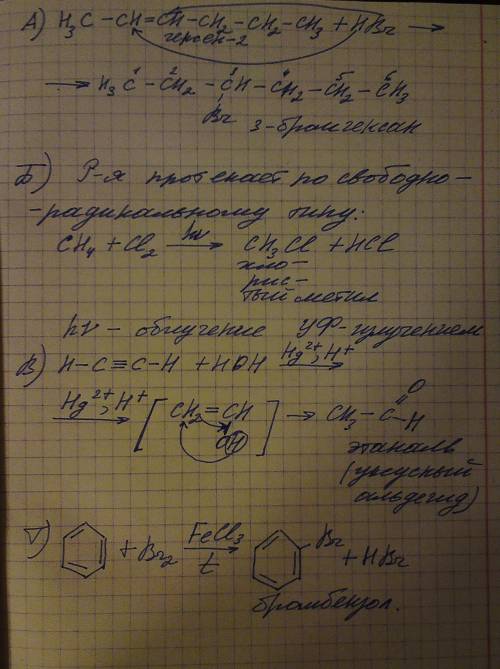 А) H₃C – CH = CH – CH₂ – CH₂ – CH₃ + HBr →
гексен-2
→ H₃C¹ – C²H₂ – C³H – C⁴H₂ – C⁵H₂ – C⁶H₃
Br
3-бромгексан
Б) Р-я протекает по свободно-
-радикальному типу:
CH₄ + Cl₂ hν→ CH₃Cl + HCl
хло-
рис-
тый метил
hν – облучение УФ-излучением
В) H–C≡C–H + HOH Hg²⁺, H⁺→
Hg²⁺, H⁺→ [CH₂ = CH OH] → CH₃ – C O H
этаналь
(уксусный
альдегид)
Г) + Br₂ FeCl₃ t→ Br + HBr
бромбензол.